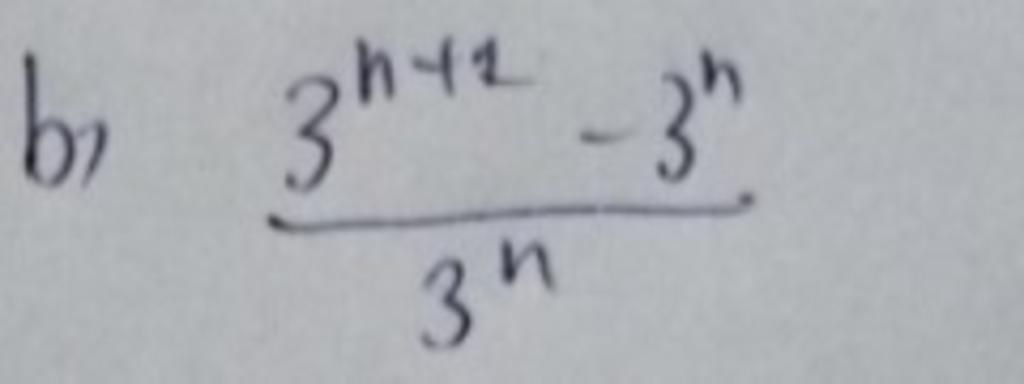 b) 3^{n+1} - 3^n
3^n